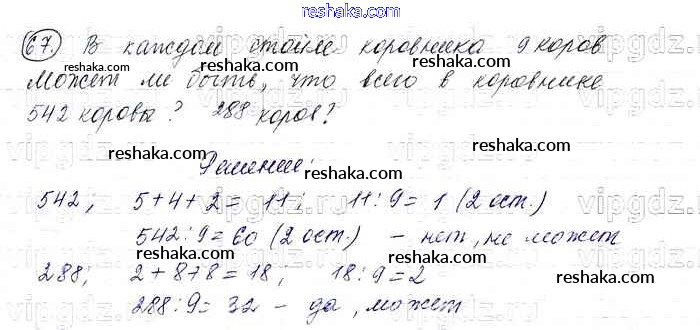 reshaka.com
67. В каждом стойле коровника 9 коров
reshaka.com reshaka.com
Может ли быть, что всего в коровнике
542 коровы? 288 коров?
reshaka.com reshaka.com
Решение:
542; 5+4+2=11; 11:9=1 (2 ост.)
542:9=60 (2 ост.) - нет, не может
288; 2+8+8=18; 18:9=2
288:9=32 - да, может
reshaka.com reshaka.com